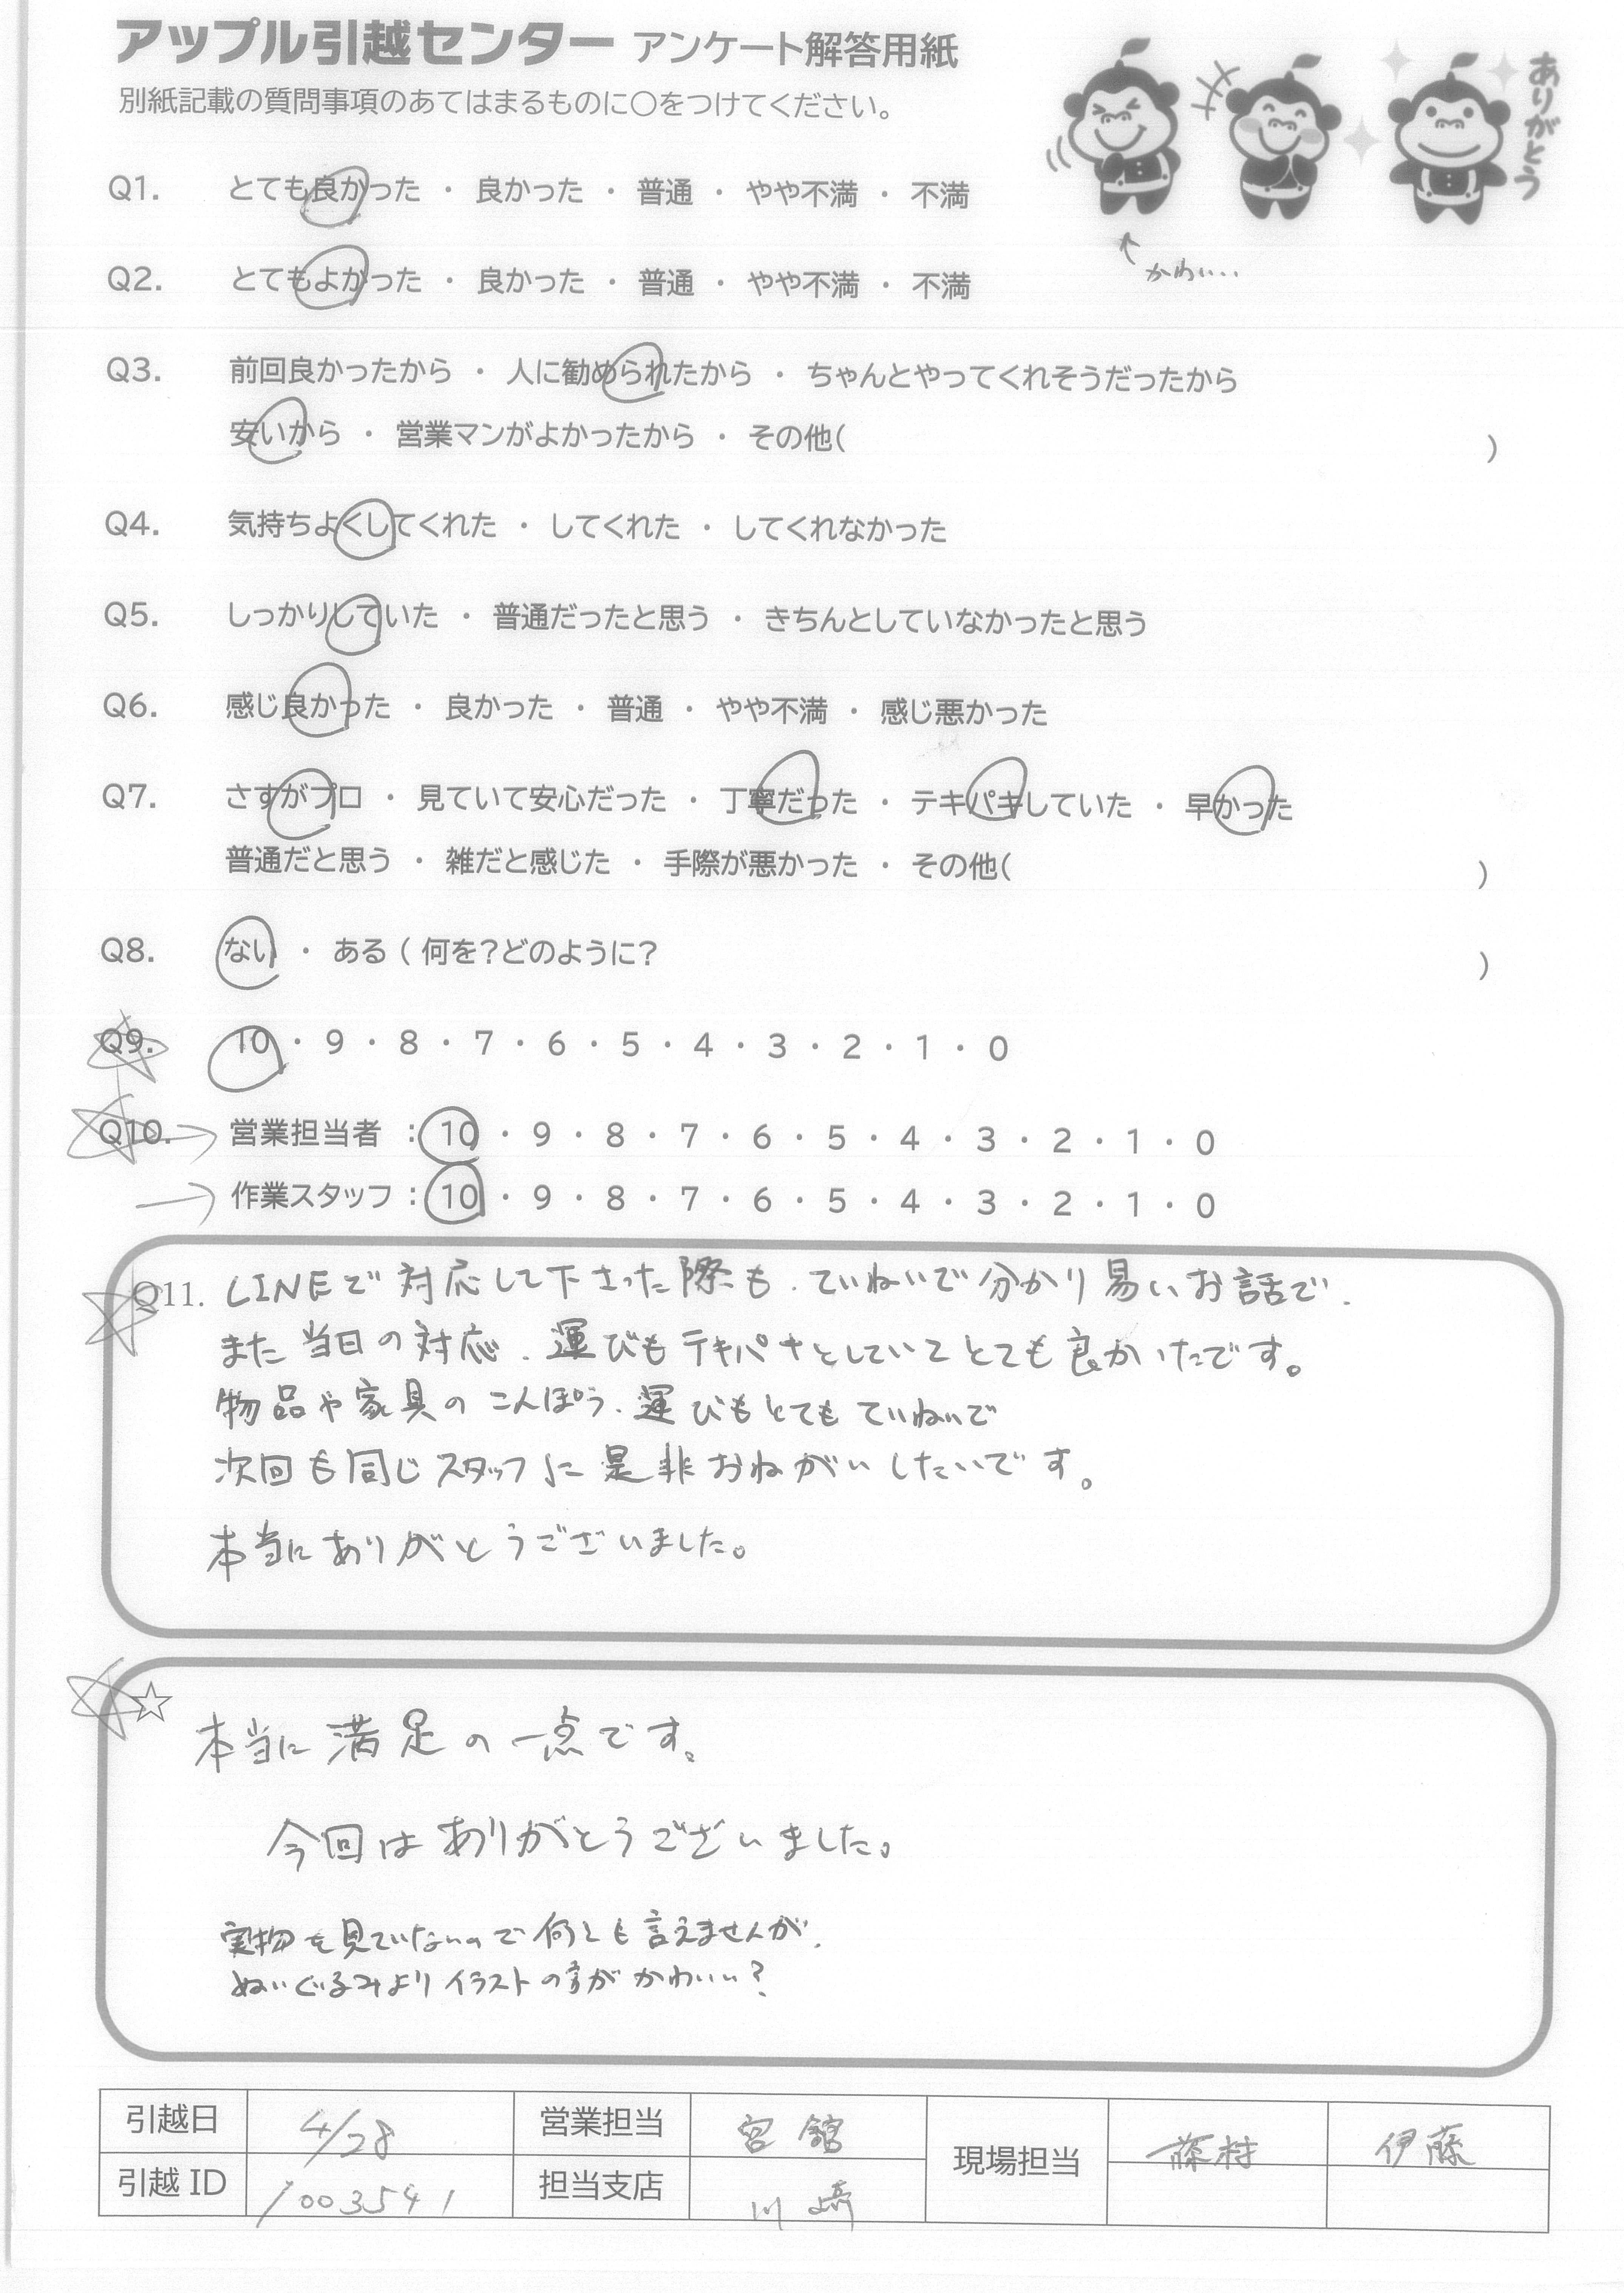 アップル引越センター アンケート解答用紙
別紙記載の質問事項のあてはまるものに○をつけてください。
ありがとう
かわい・・
Q1. とても良かった ・ 良かった ・ 普通 ・ やや不満 ・ 不満
Q2. とてもよかった ・ 良かった ・ 普通 ・ やや不満 ・ 不満
Q3. 前回良かったから ・ 人に勧められたから ・ ちゃんとやってくれそうだったから
安いから ・ 営業マンがよかったから ・ その他( )
Q4. 気持ちよくしてくれた ・ してくれた ・ してくれなかった
Q5. しっかりしていた ・ 普通だったと思う ・ きちんとしていなかったと思う
Q6. 感じ良かった ・ 良かった ・ 普通 ・ やや不満 ・ 感じ悪かった
Q7. さすがプロ ・ 見ていて安心だった ・ 丁寧だった ・ テキパキしていた ・ 早かった
普通だと思う ・ 雑だと感じた ・ 手際が悪かった ・ その他( )
Q8. ない ・ ある ( 何を?どのように? )
Q9. 10 ・ 9 ・ 8 ・ 7 ・ 6 ・ 5 ・ 4 ・ 3 ・ 2 ・ 1 ・ 0
Q10. 営業担当者 : 10 ・ 9 ・ 8 ・ 7 ・ 6 ・ 5 ・ 4 ・ 3 ・ 2 ・ 1 ・ 0
作業スタッフ : 10 ・ 9 ・ 8 ・ 7 ・ 6 ・ 5 ・ 4 ・ 3 ・ 2 ・ 1 ・ 0
Q11. LINEで対応して下さった際も、ていねいで分かり易いお話で、
また当日の対応、運びもテキパキとしていてとても良かったです。
物品や家具のこんぽう、運びもとてもていねいで
次回も同じスタッフに是非おねがいしたいです。
本当にありがとうございました。
☆ 本当に満足の一点です。
今回はありがとうございました。
実物を見ていないので何とも言えませんが、
ぬいぐるみよりイラストの方がかわいい?
引越日 4/28 営業担当 宮舘 現場担当 藤村 伊藤
引越ID 1003541 担当支店 川崎